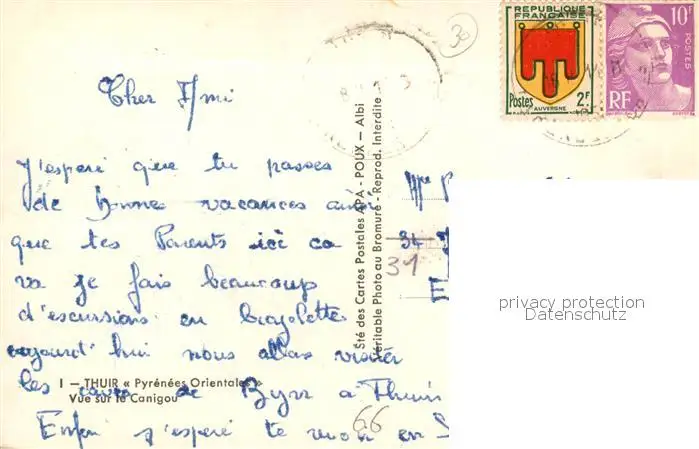 30
RÉPUBLIQUE
FRANÇAISE
Postes 2F
AUVERGNE
10F
POSTES
RF
Cher Ami
J'espère que tu passes
de bonnes vacances ainsi
que tes Parents ici ça
va je fais beaucoup
d'escursions en bicyclette
aujourd'hui nous allas visiter
les caves de Byrr a Thuir
Enfin j'espere te revoir en
I — THUIR « Pyrénées Orientales »
Vue sur le Canigou
66
Sté des Cartes Postales APA - POUX — Albi
Véritable Photo au Bromure - Reprod. Interdite
34
31
privacy protection
Datenschutz